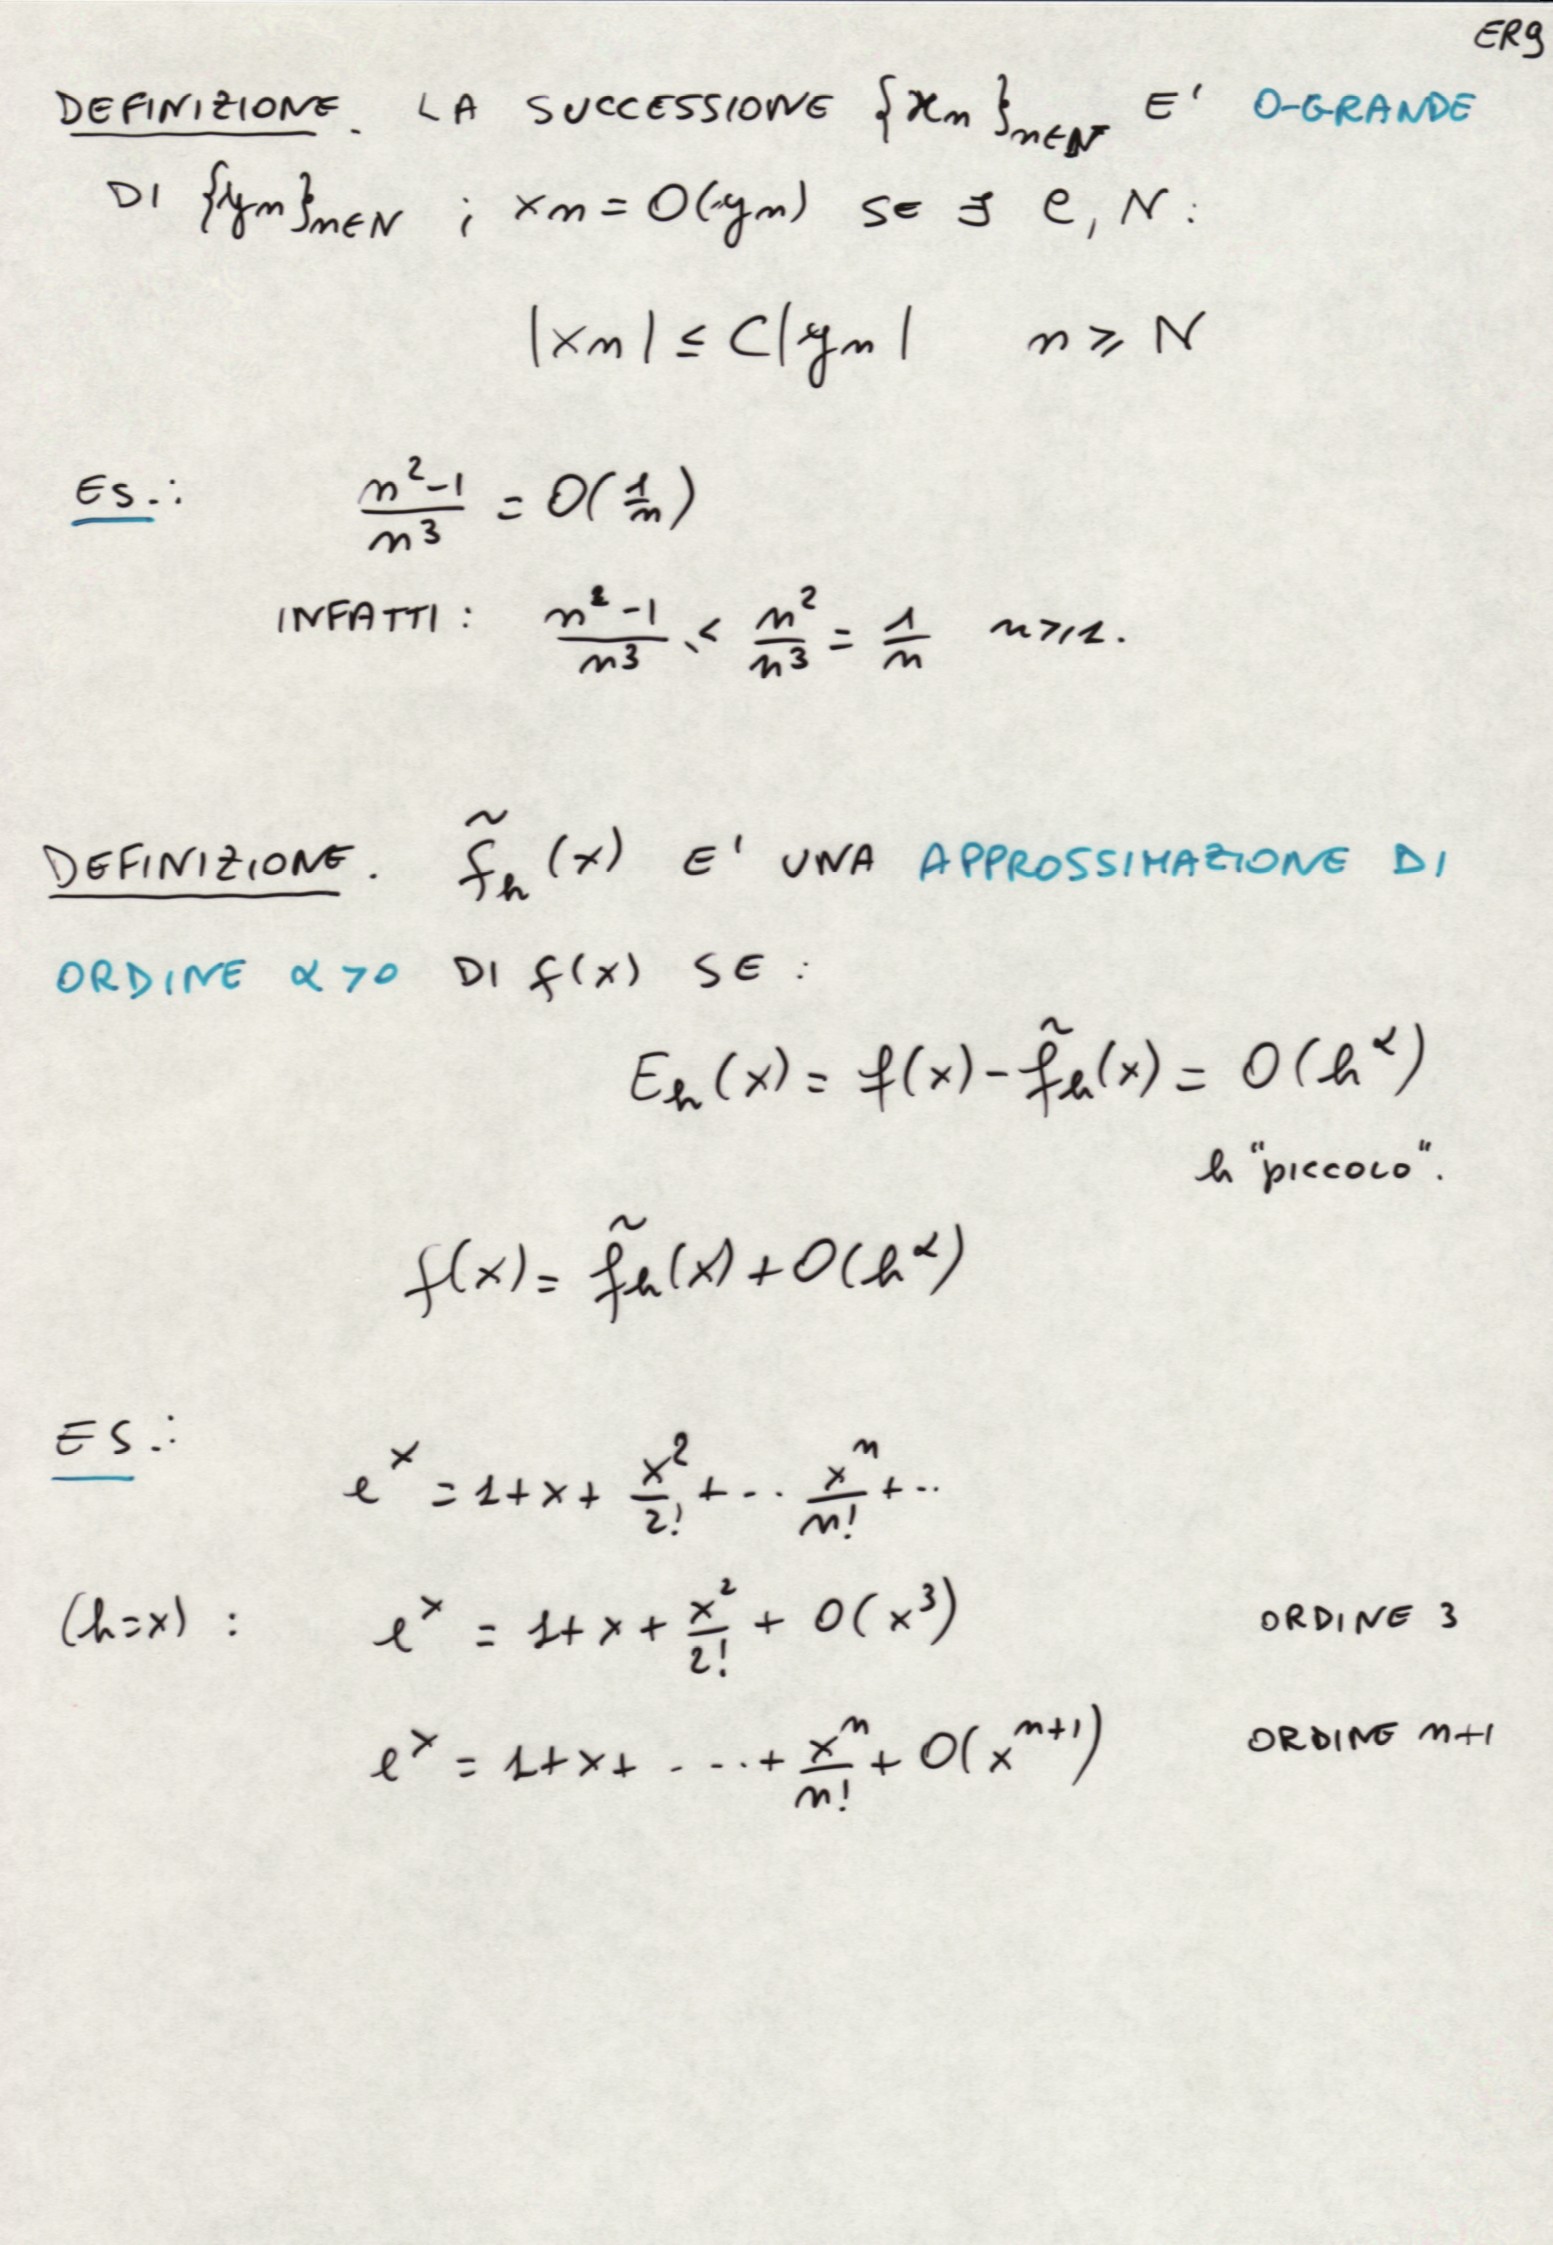 ER9
DEFINIZIONE. LA SUCCESSIONE {xn}n∈N E' O-GRANDE
DI {yn}n∈N ; xn = O(yn) SE ∃ C, N :
|xn| ≤ C|yn| n ≥ N
ES.: n²-1/n³ = O(1/n)
INFATTI : n²-1/n³ < n²/n³ = 1/n n ≥ 1.
DEFINIZIONE. f̃h(x) E' UNA APPROSSIMAZIONE DI
ORDINE α>0 DI f(x) SE :
Eh(x) = f(x) - f̃h(x) = O(h^α)
h "PICCOLO".
f(x) = f̃h(x) + O(h^α)
ES.: e^x = 1+x+ x²/2! + -.. x^n/n! + ..
(h=x) : e^x = 1+x+ x²/2! + O(x³) ORDINE 3
e^x = 1+x+ - ..+ x^n/n! + O(x^(n+1)) ORDINE n+1